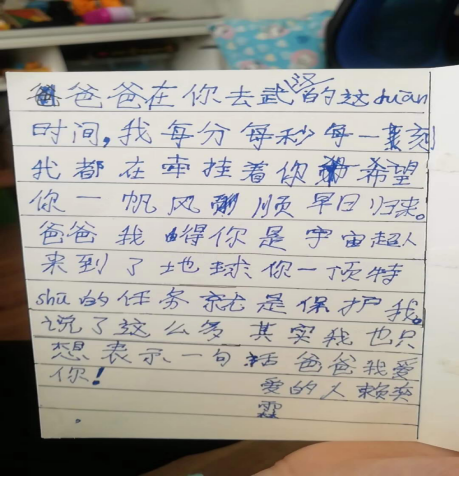 爸爸在你去武汉的这duan
时间,我每分每秒每一刻
我都在牵挂着你 希望
你一帆风顺早日归来。
爸爸我 得你是宇宙超人
来到了地球你一项特
shu的任务就是保护我。
说了这么多 其实我也只
想表示一句话爸爸我爱
你!
爱的人 赖奕
霏